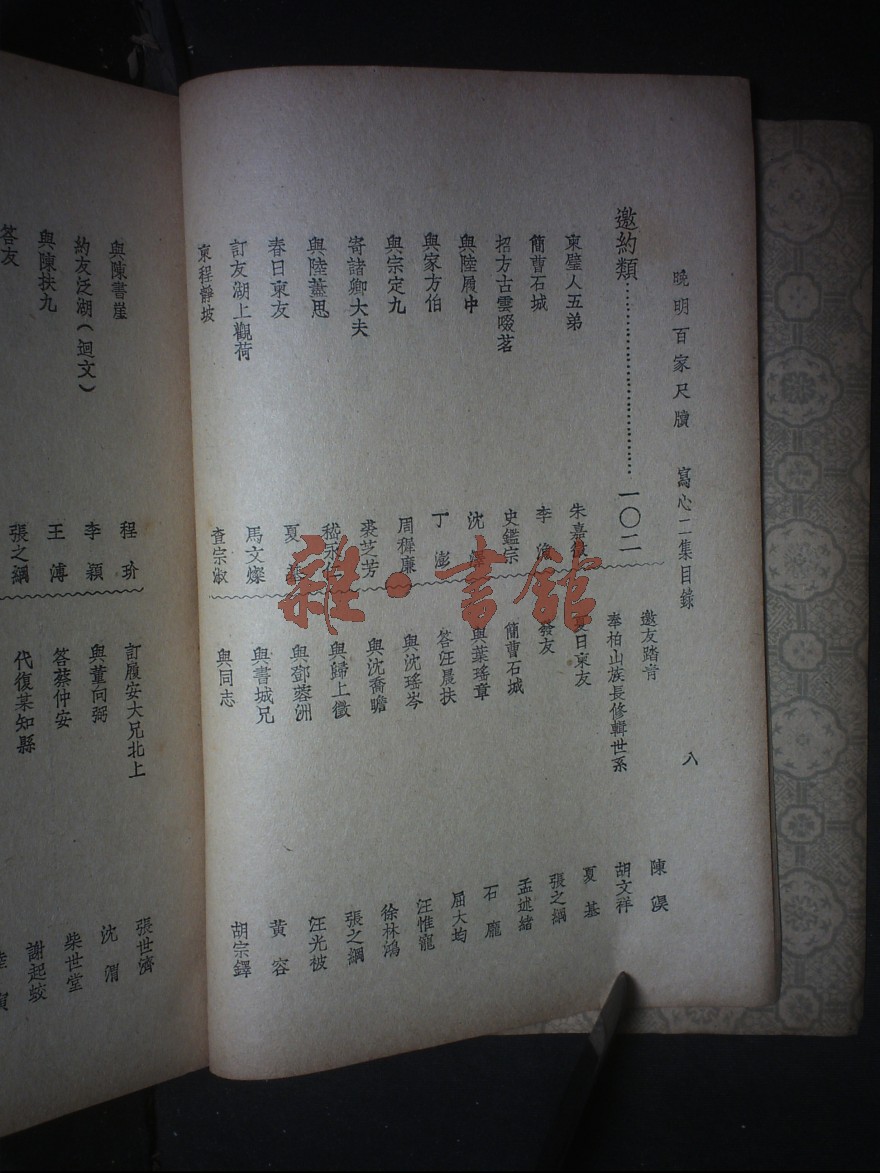 晚明百家尺牘 寫心二集目錄 八
邀約類……………………一〇二
柬璧人五弟
簡曹石城
招方古雲啜茗
與陸履中
與家方伯
與宗定九
寄諸卿大夫
與陸藎思
春日柬友
訂友湖上觀荷
柬程靜坡
朱嘉
李
史鑑宗
沈
丁澎
周穉廉
裘芝芳
嵇永
夏
馬文燦
查宗淑
邀友踏青 陳淏
奉柏山族長修輯世系 胡文祥
夏日柬友 夏基
發友 張之綱
簡曹石城 孟述緒
與葉瑤章 石龐
答汪晨扶 屈大均
與沈瑤岑 汪惟寵
與沈喬瞻 徐林鴻
與歸上徵 張之綱
與鄧蓉洲 汪光被
與書城兄 黃容
與同志 胡宗鐸
雜·書館
與陳書崖 程玠
約友泛湖(迴文) 李穎
與陳扶九 王溥
答友 張之綱
訂履安大兄北上 張世濟
與董向弼 沈渭
答蔡仲安 柴世堂
代復某知縣 謝起蛟